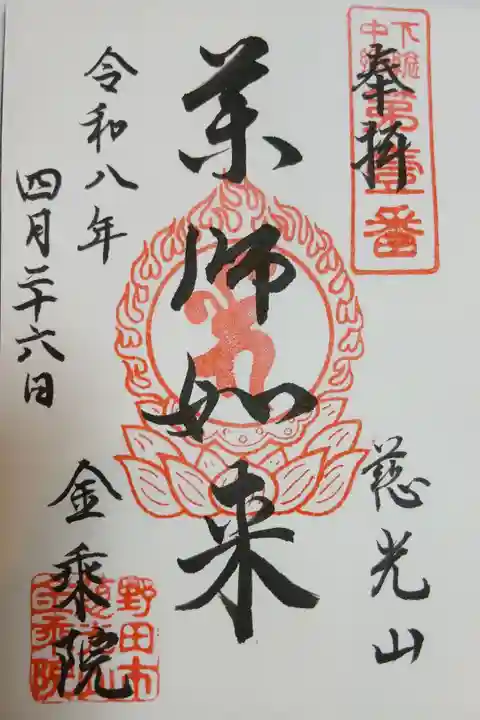 奉拝
第壹番
慈光山
薬師如来
令和八年
四月二十六日
金乗院
野田市